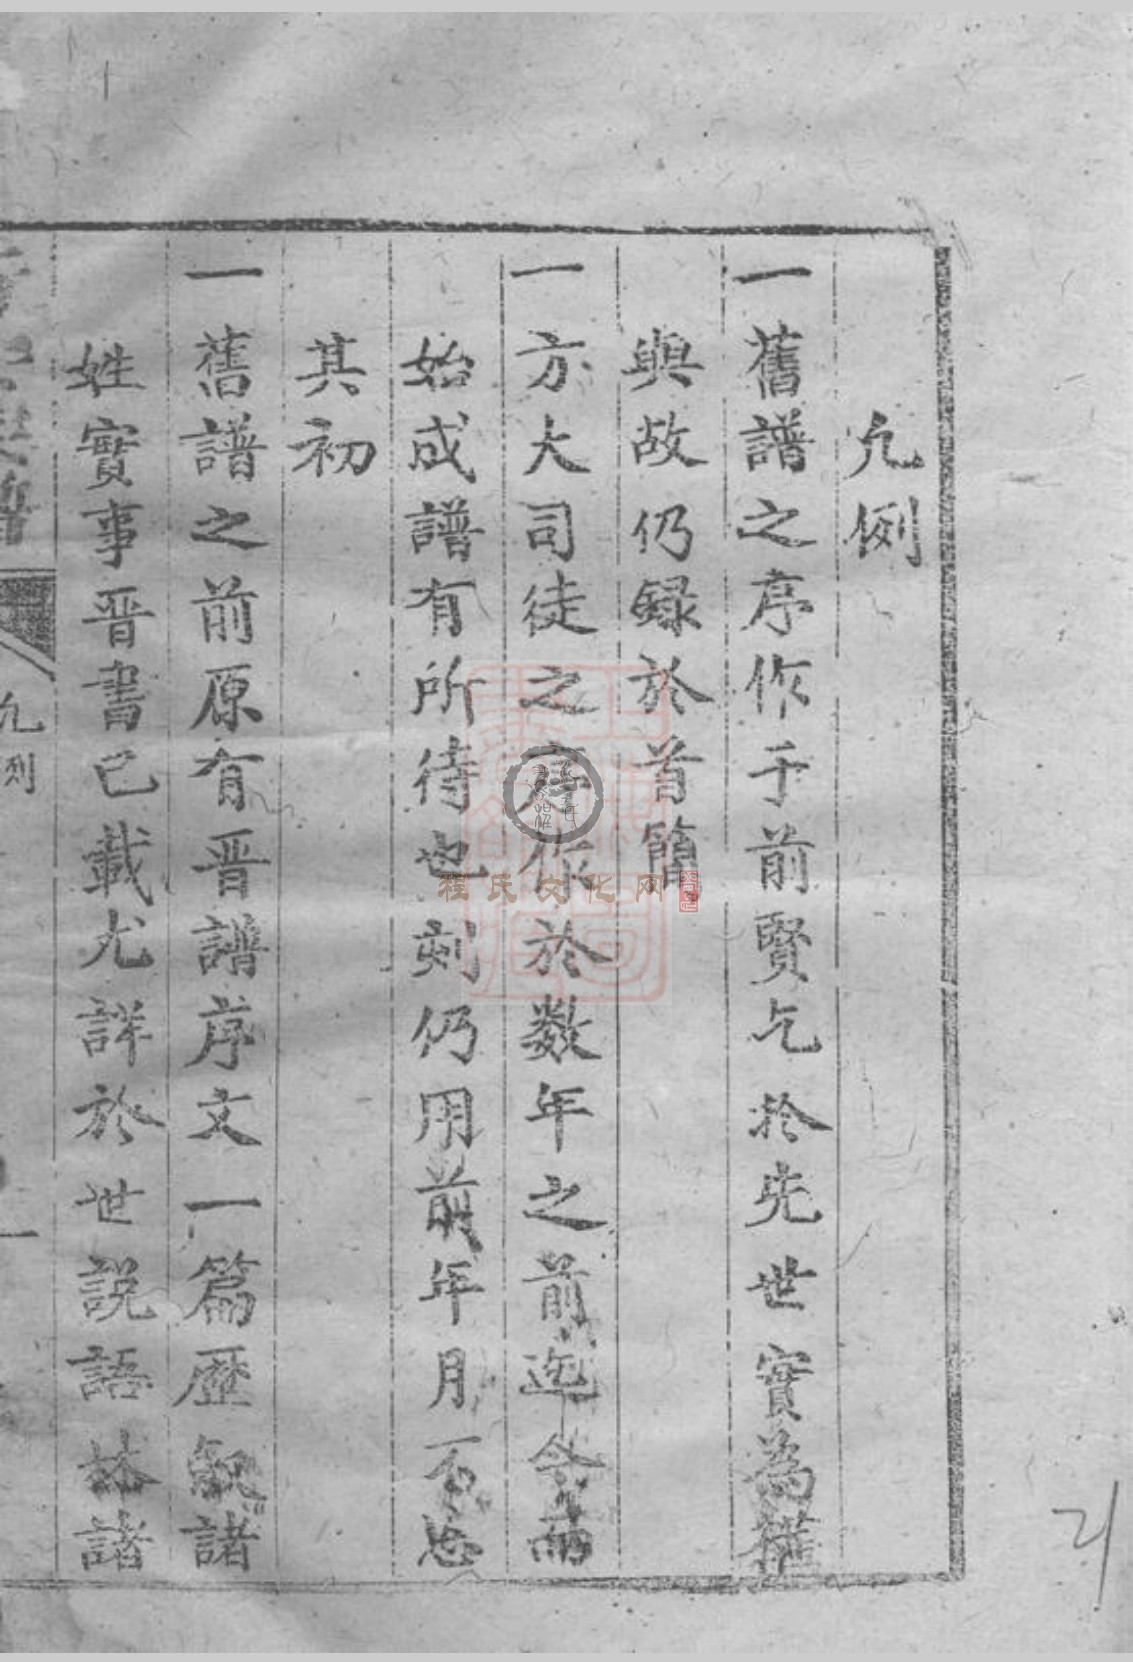 凡例
一舊譜之序作于前賢乞於先世實為權
輿故仍録於首簡
一方大司徒之序作於数年之前迄今而
始成譜有所待也刻仍用前年月不忘
其初
一舊譜之前原有晋譜序文一篇歴叙諸
姓實事晋書已載尤詳於世説語林諸
凡列
一
程氏文化网
21